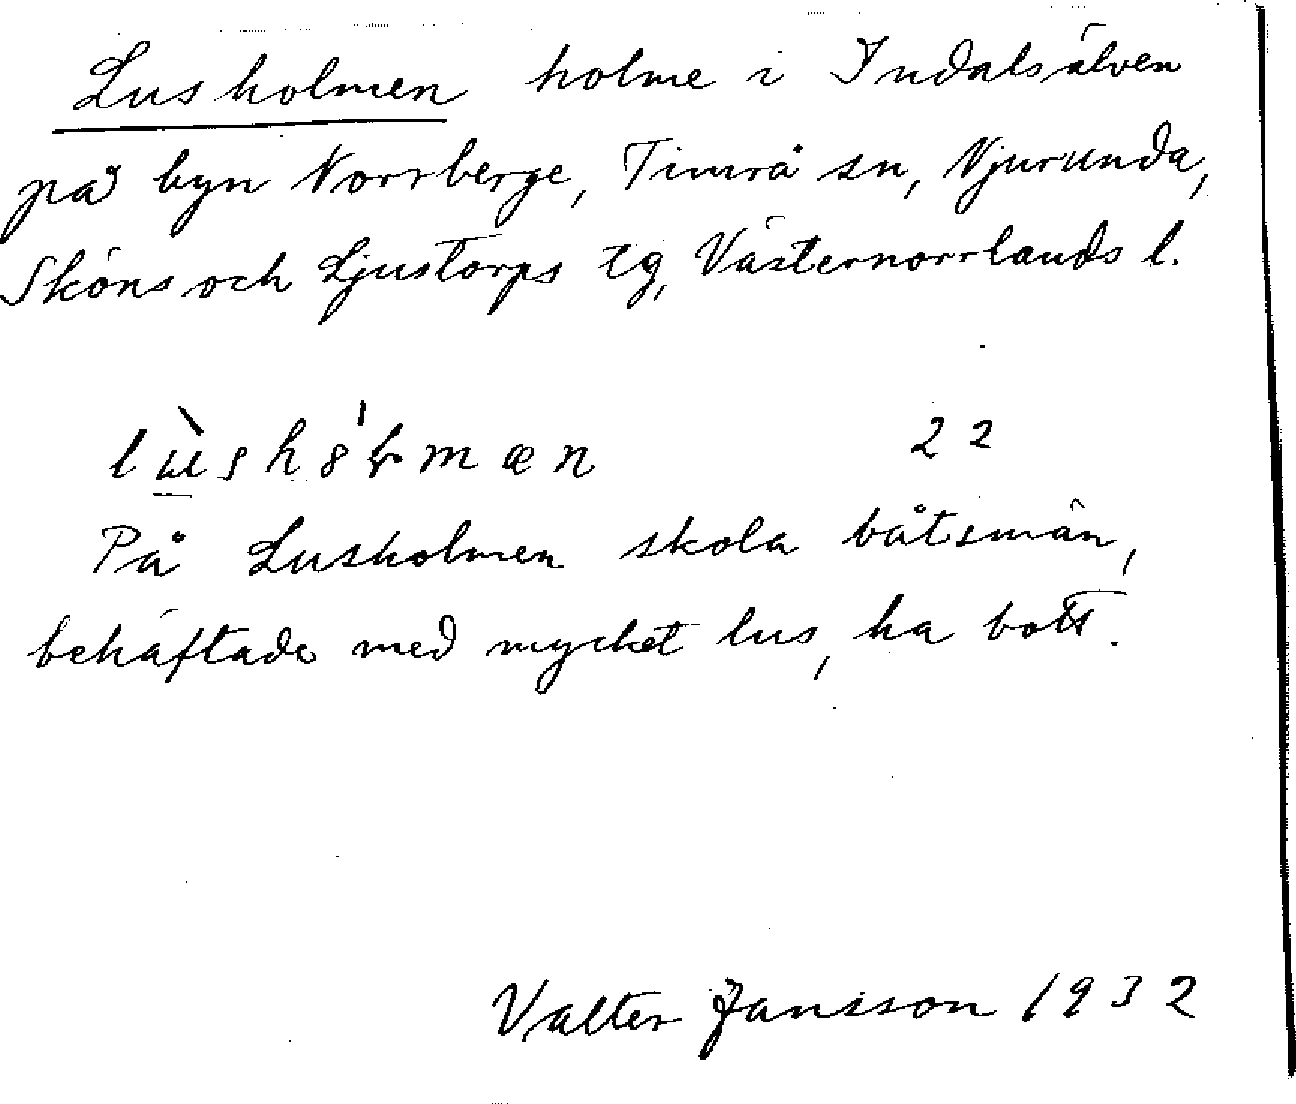 Lusholmen holme i Indalsälven
på byn Norrberge, Timrå sn, Njurunda,
Sköns och Ljustorps tg, Västernorrlands l.
22
På Lusholmen skola båtsmän,
behäftade med mycket lus, ha bott.
Valter Jansson 1932